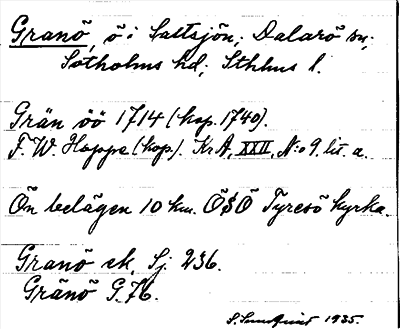 Granö, ö i Saltsjön; Dalarö sn;
Sotholms hd; Sthlms l.
Grän öö 1714 (kop. 1740).
F. W. Hoppe (kop). Kr. A, XXII, N:o 9. lit. a.
Ön belägen 10 km. Ö$Ö Tyresö kyrka.
Granö ek. Sj. 236.
Gränö G. 76.
1935.